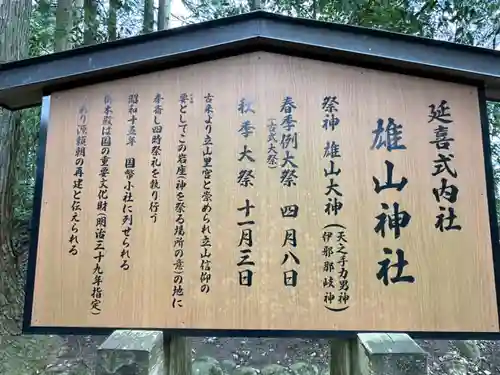 延喜式内社
雄山神社
祭神 雄山大神(天之手力男神 伊邪那岐神)
春季例大祭 四月八日
(古式大祭)
秋季大祭 十一月三日
古来より立山里宮と崇められ立山信仰の
要としてこの岩座(神を祭る場所の意)の地に
春斎し四時祭礼を執り行う
昭和十五年 国幣小社に列せられる
本殿は国の重要文化財(明治三十九年指定)
あり源頼朝の再建と伝えられる